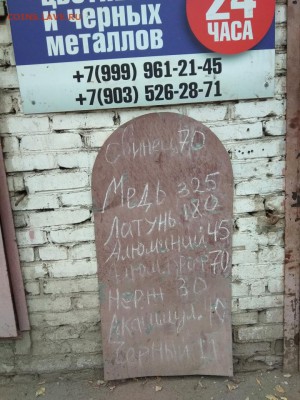 цветных
и черных
металлов
24
ЧАСА
+7(999) 961-21-45
+7(903) 526-28-71
Свинец 70
Медь 325
Латунь 180
Алюминий 45
70
Нерж 30
Черный 11